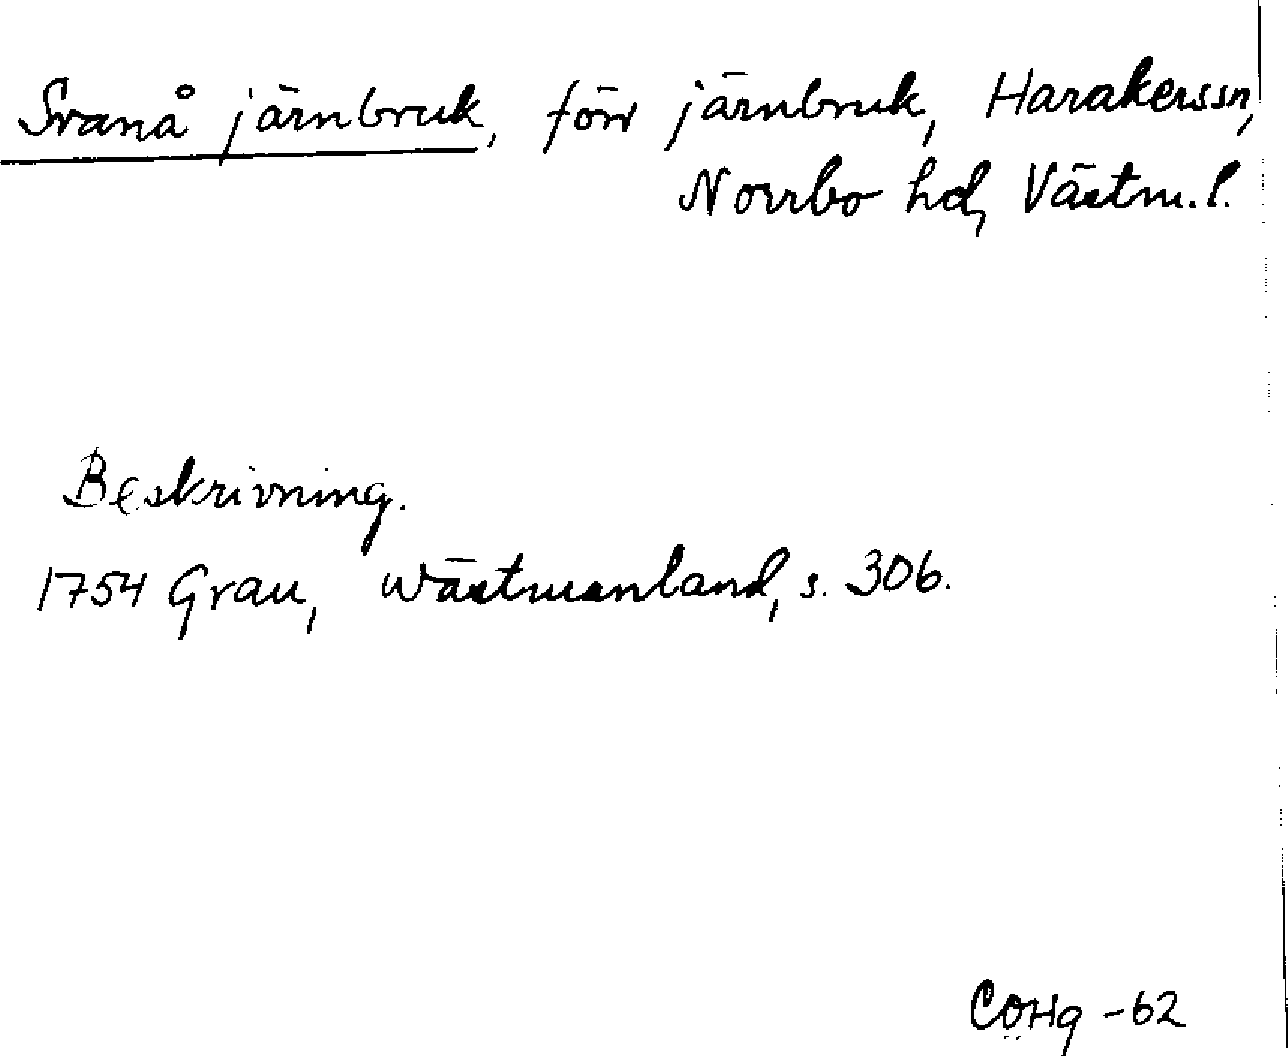 Svanå järnbruk, förr järnbruk, Harakerssn,
Norrbo hd, Västm.l.
Beskrivning.
1754 Grau, Wästmanland, s. 306.
CÖHg -62